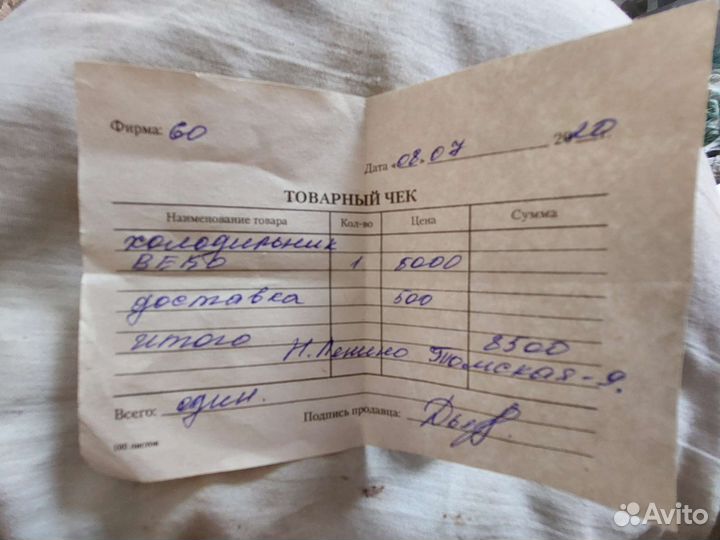 Фирма: 60
Дата «08» 07 2020 г.
ТОВАРНЫЙ ЧЕК
Наименование товара Кол-во Цена Сумма
холодильник
ВЕКО 1 8000
доставка 500
итого 8500
Н. Ленино Томская-9.
Всего: один.
Подпись продавца:
100 листов
Avito